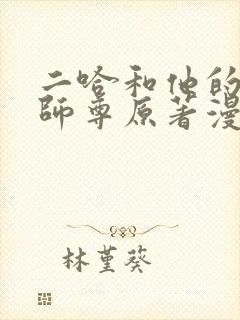 二哈和他的
師尊原著漫
林堇葵